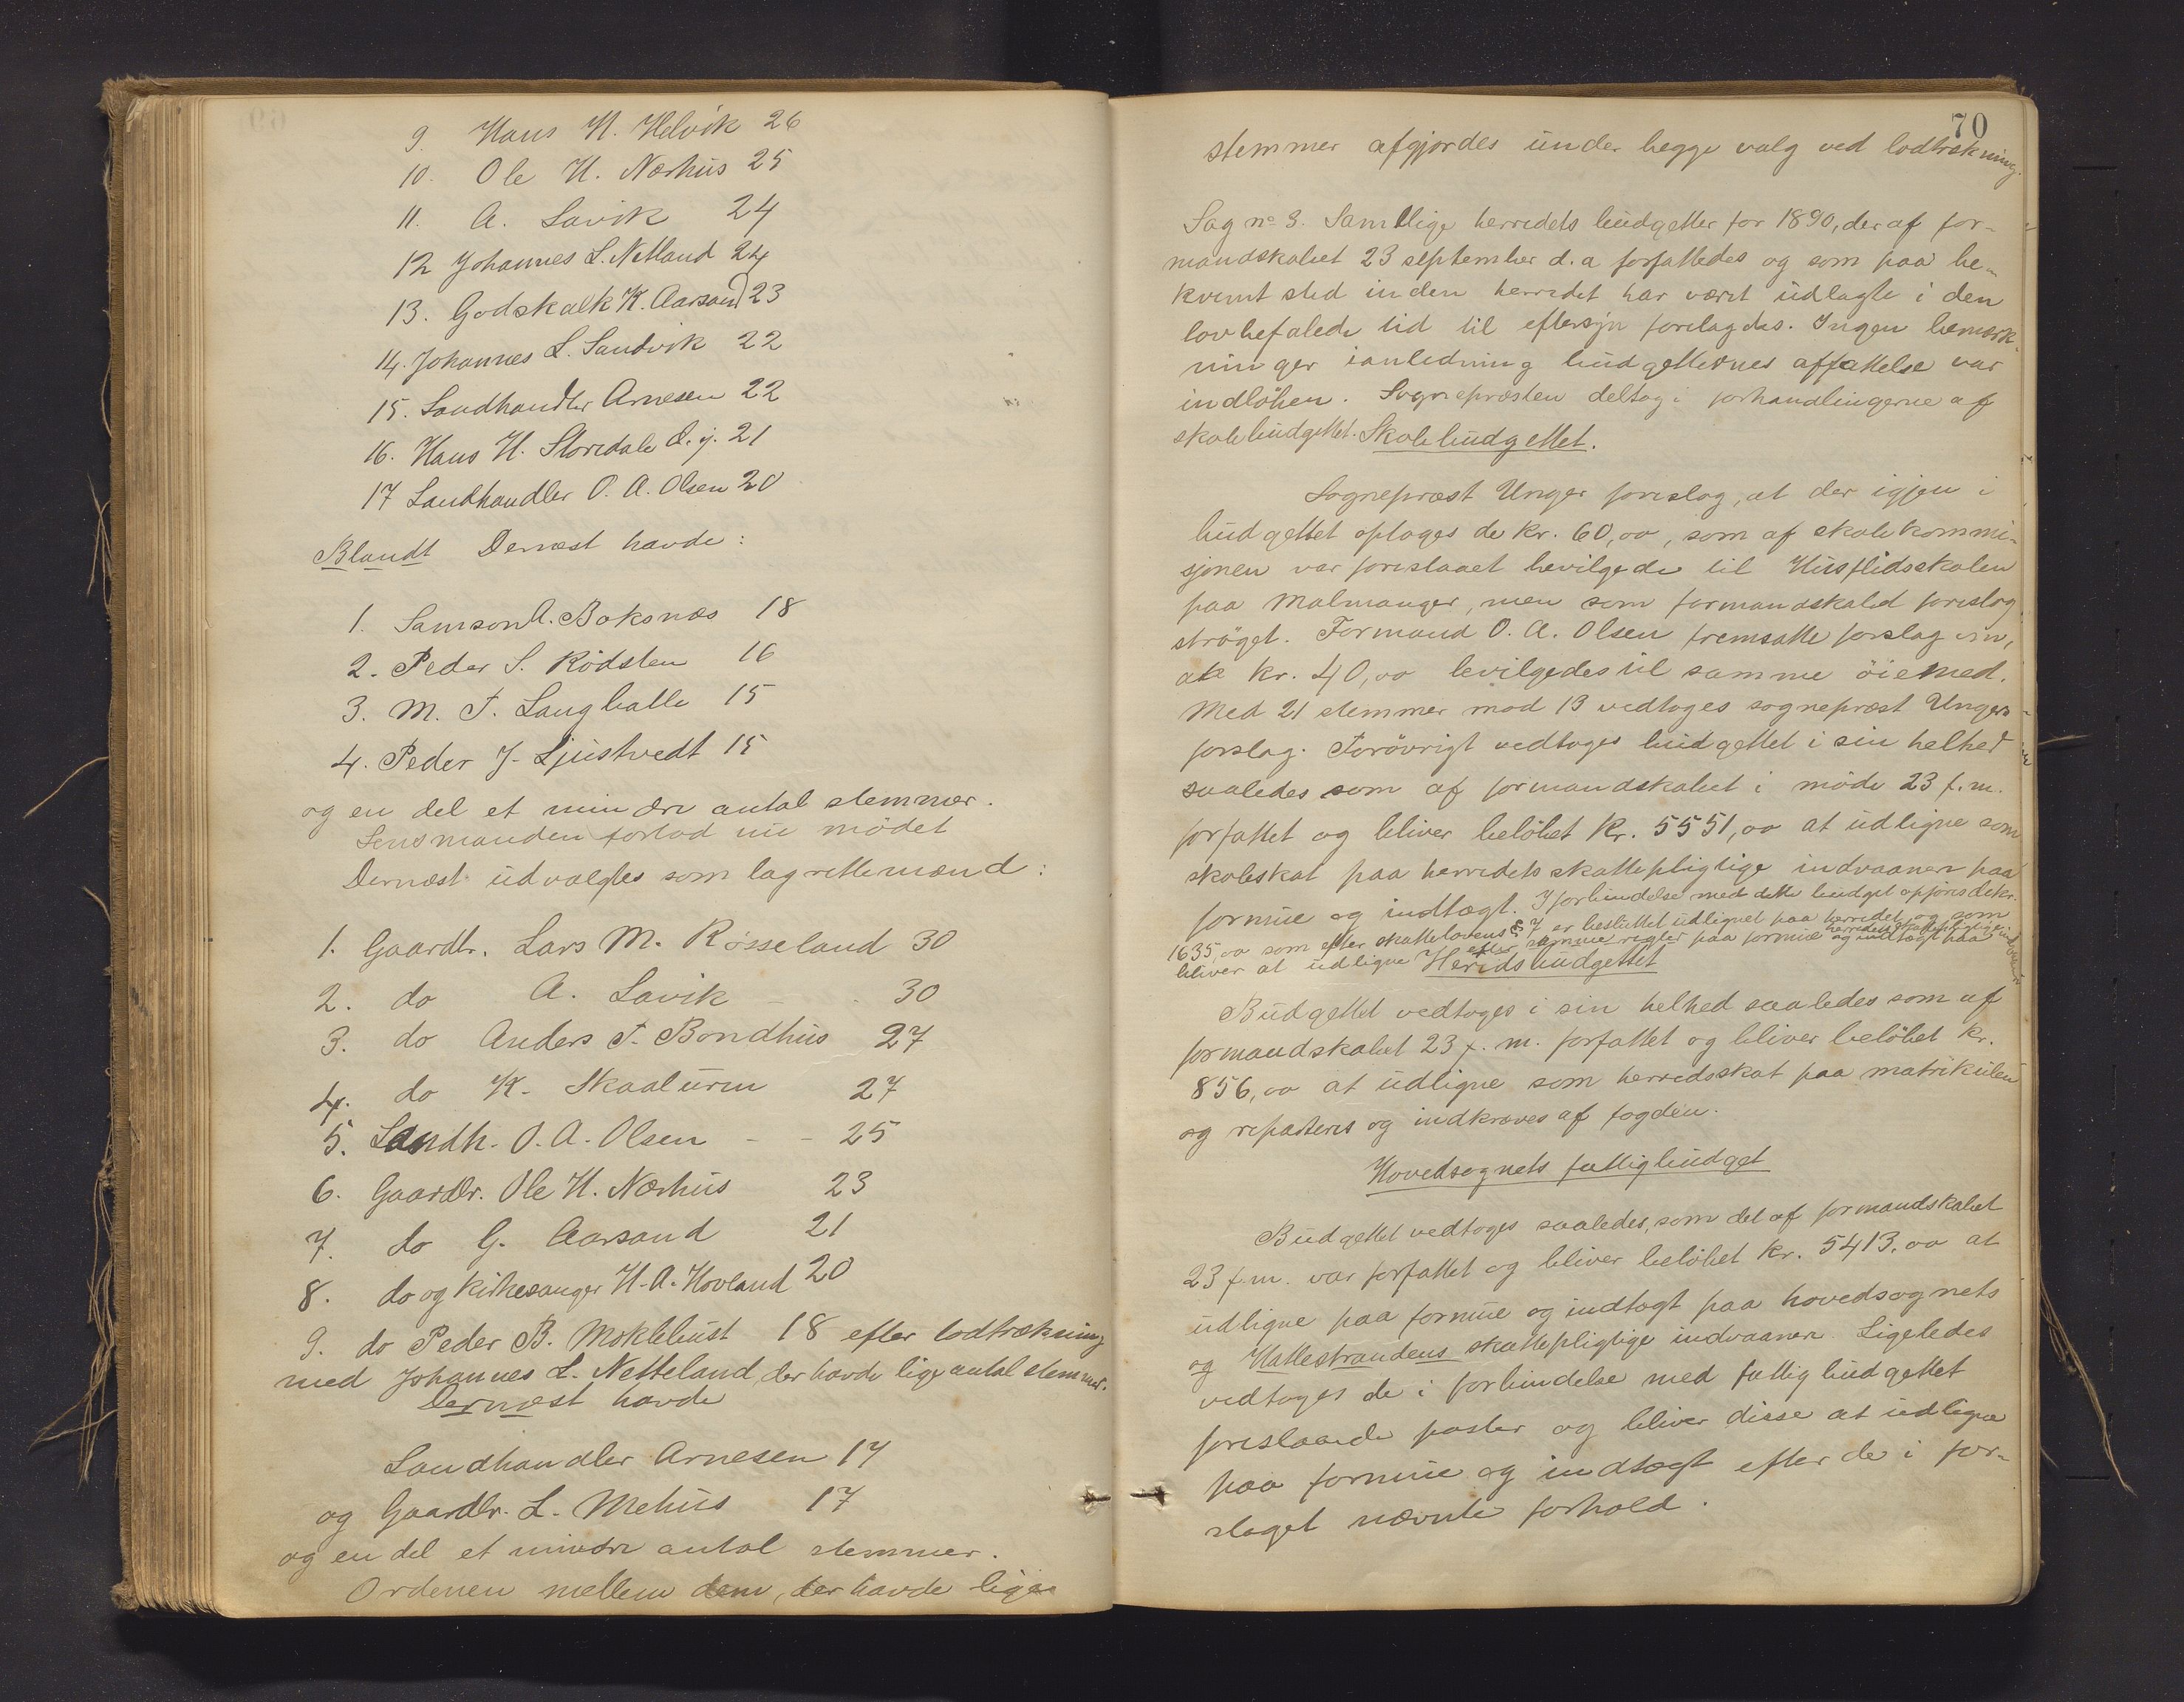 9. Hans H. Helvik 26
10. Ole H. Nærhus 25
11. A. Lavik 24
12 Johannes L. Netland 24
13. Godskalk K. Aarsand 23
14. Johannes L. Sandvik 22
15. Landhandler Arnesen 22
16. Hans H. Storedale d. y. 21
17 Landhandler O. A. Olsen 20
Blandt Dernæst havde:
1. Samson A. Baksnæs 18
2. Peder S. Rödsten 16
3. M. T. Langballe 15
4. Peder J. Ljustvedt 15
og en del et mindre antal stemmer.
Lensmanden forlod nu mödet
Dernæst udvalgtes som lagrettemænd:
1. Gaardbr. Lars M. Røsseland 30
2. do A. Lavik 30
3. do Anders T. Bondhus 27
4. do K. Skaaluren 27
5. Landh. O. A. Olsen 25
6. Gaardbr. Ole H. Nærhus 23
7. do G. Aarsand 21
8. do og kirkesanger H. A. Hovland 20
9. do Peder B. Moklebust 18 efter lodtrækning
med Johannes L. Netteland, der havde lige antal stemmer.
Dernæst havde
Landhandler Arnesen 17
og Gaardbr. L. Mehus 17
og en del et mindre antal stemmer.
Ordenen mellem dem, der havde lige
70
stemmer afgjordes under begge valg ved lodtrækning.
Sag no 3. Samtlige herredets budgetter for 1890, der af for-
mandskabet 23 september d. a forfattedes og som paa be-
kvemt sted inden herredet har været udlagte i den
lovbefalede tid til eftersyn forelagdes. Ingen bemærk-
ninger ianledning budgetternes affattelse var
indlöben. Sognepræsten deltog i forhandlingerne af
skolebudgettet. Skolebudgettet.
Sognepræst Unger foreslog, at der igjen i
budgettet optages de kr. 60,00, som af skolekommi-
sjonen var foreslaaet bevilgede til Husflidsskolen
paa Malmanger, men som formandskabet foreslog
ströget. Formand O. A. Olsen fremsatte forslag om,
at kr. 40,00 bevilgedes til samme öiemed.
Med 21 stemmer mod 13 vedtoges sognepræst Ungers
forslag. Forövrigt vedtoges budgettet i sin helhed
saaledes som af formandskabet i möde 23 f. m.
forfattet og bliver belöbet kr. 5551,00 at udligne som
skoleskat paa herredets skattepligtige indvaanere paa
formue og indtægt. I forbindelse med dette budget opføres de kr.
1635,00 som efter skattelovens § 7 er besluttet udlignet paa herredet og som
bliver at udligne efter samme regler paa formue og indtægt paa herredets skattepligtige indvaanere
Heridsbudgettet
Budgettet vedtoges i sin helhed saaledes som af
formandskabet 23 f. m. forfattet og bliver belöbet kr.
856,00 at udligne som herredsskat paa matrikulen
og reparteres og indkræves af fogden.
Hovedsognets fattigbudget
Budgettet vedtoges saaledes, som det af formandskabet
23 f. m. var forfattet og bliver belöbet kr. 5413,00 at
udligne paa formue og indtægt paa hovedsognets
og Hattestrandens skattepligtige indvaanere. Ligeledes
vedtoges de i forbindelse med fattigbudgettet
foreslaaede poster og bliver disse at udligne
paa formue og indtægt efter de i for-
slaget nævnte forhold.